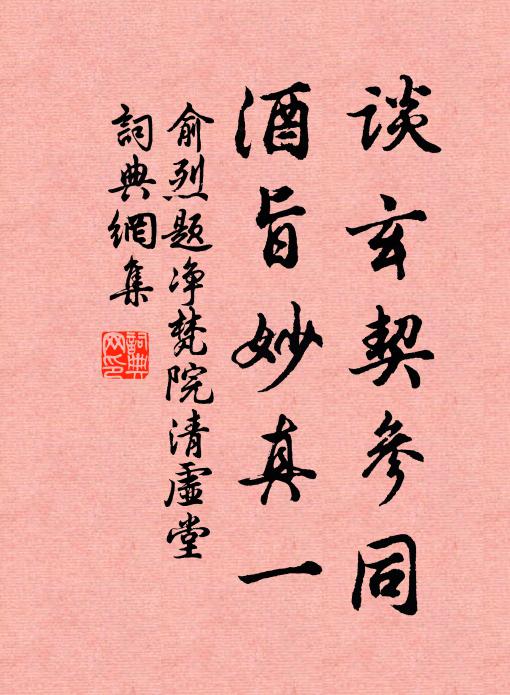 谈玄契参同
酒旨妙真一
俞烈题净梵院清虚堂
詞典網集
詞典網印